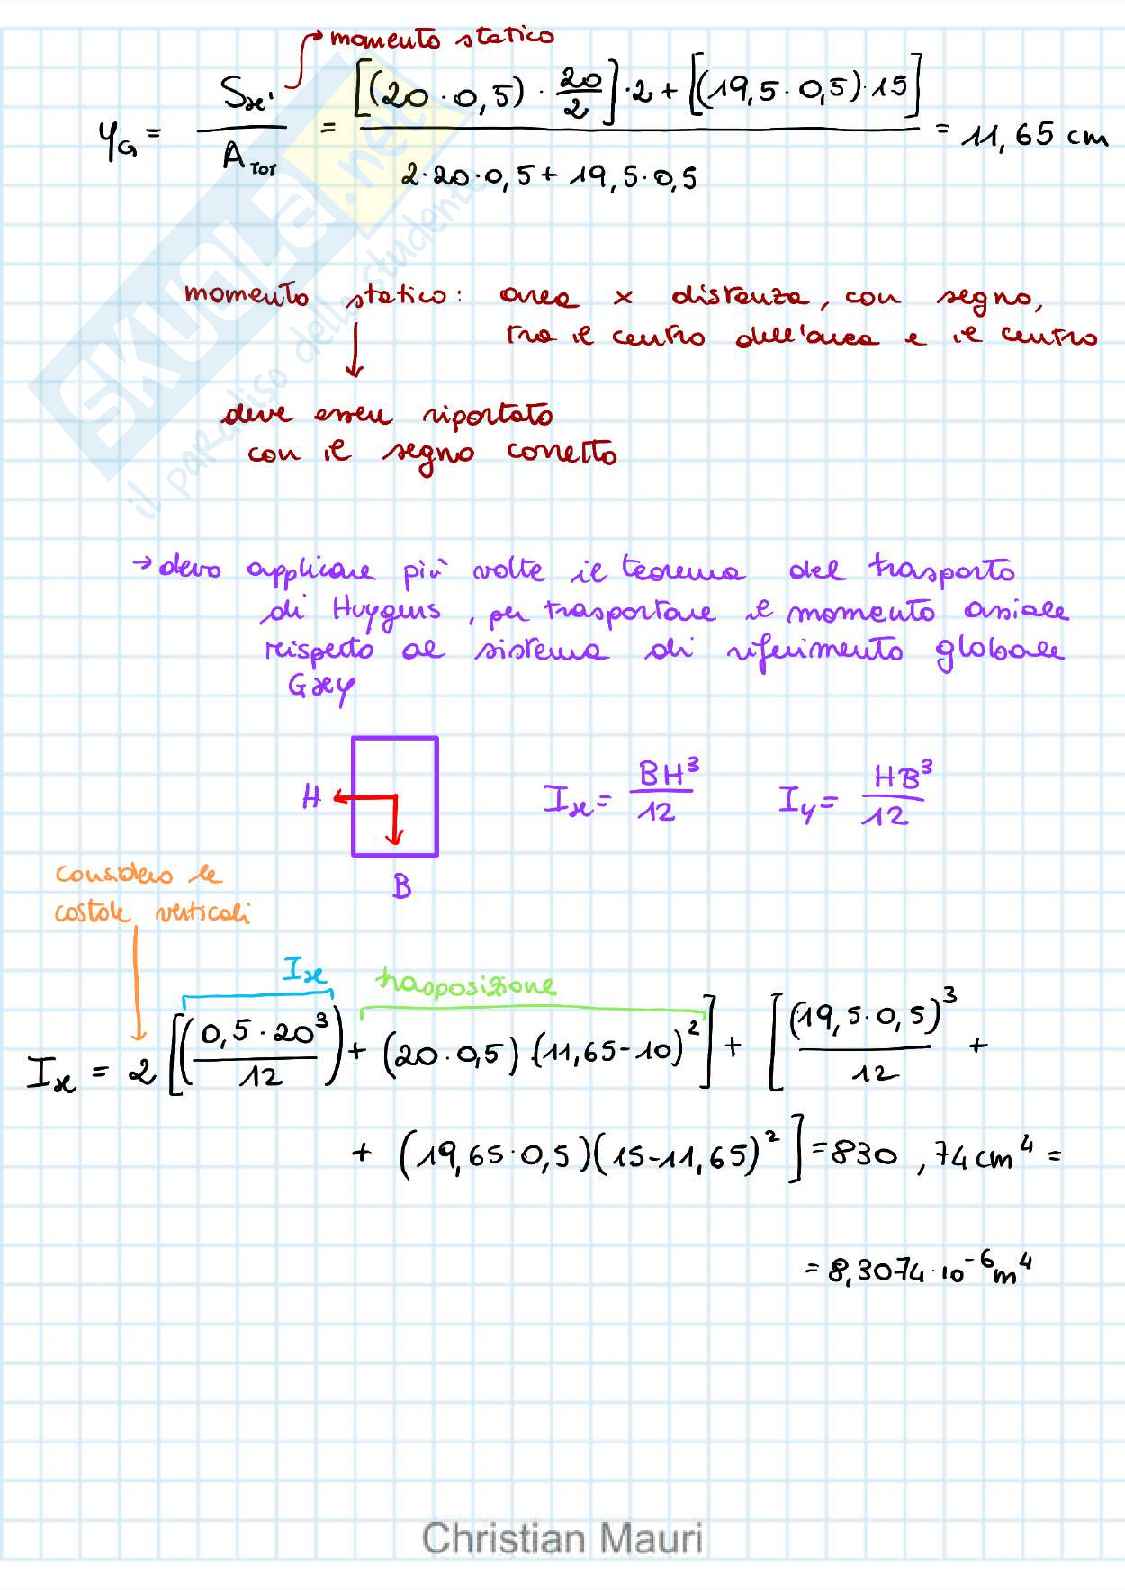 momento statico
y_G = S_x' / A_TOT = [(20·0,5)·20/2]·2 + [(19,5·0,5)·15] / 2·20·0,5 + 19,5·0,5 = 11,65 cm
momento statico: area x distanza, con segno,
tra il centro dell'area e il centro
deve essere riportato
con il segno corretto
→ devo applicare più volte il teorema del trasporto
di Huygens, per trasportare il momento assiale
rispetto al sistema di riferimento globale
Gxy
H
B
I_x = BH³/12 I_y = HB³/12
considero le
costole verticali
I_x trasposizione
I_x = 2 [(0,5·20³/12) + (20·0,5)(11,65-10)²] + [(19,5·0,5)³/12 +
+ (19,65·0,5)(15-11,65)²] = 830,74 cm⁴ =
= 8,3074·10⁻⁶ m⁴
SKUOLA.net
il paradiso dello studente
Christian Mauri